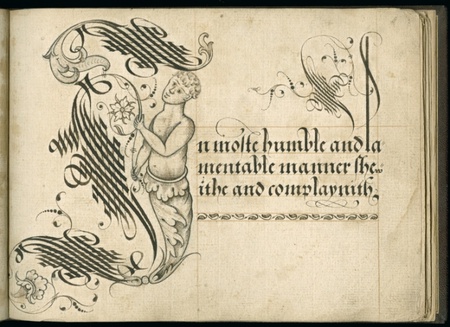 In moste humble and la
mentable manner shew
ithe and complaynith,